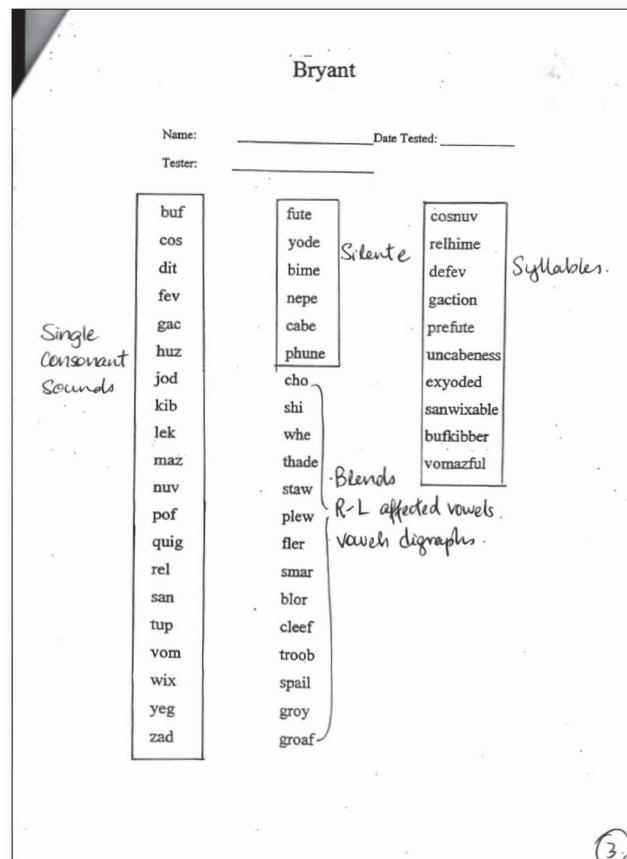 Bryant
Name: Date Tested:
Tester:
buf
cos
dit
fev
gac
huz
jod
kib
lek
maz
nuv
pof
quig
rel
san
tup
vom
wix
yeg
zad
Single
Consonant
Sounds
fute
yode
bime
nepe
cabe
phune
cho
shi
whe
thade
staw
plew
fler
smar
blor
cleef
troob
spail
groy
groaf
Silent e
Blends
R-L affected vowels.
vowels digraphs.
cosnuv
relhime
defev
gaction
prefute
uncabeness
exyoded
sanwixable
bufkibber
vomazful
Syllables.
3.